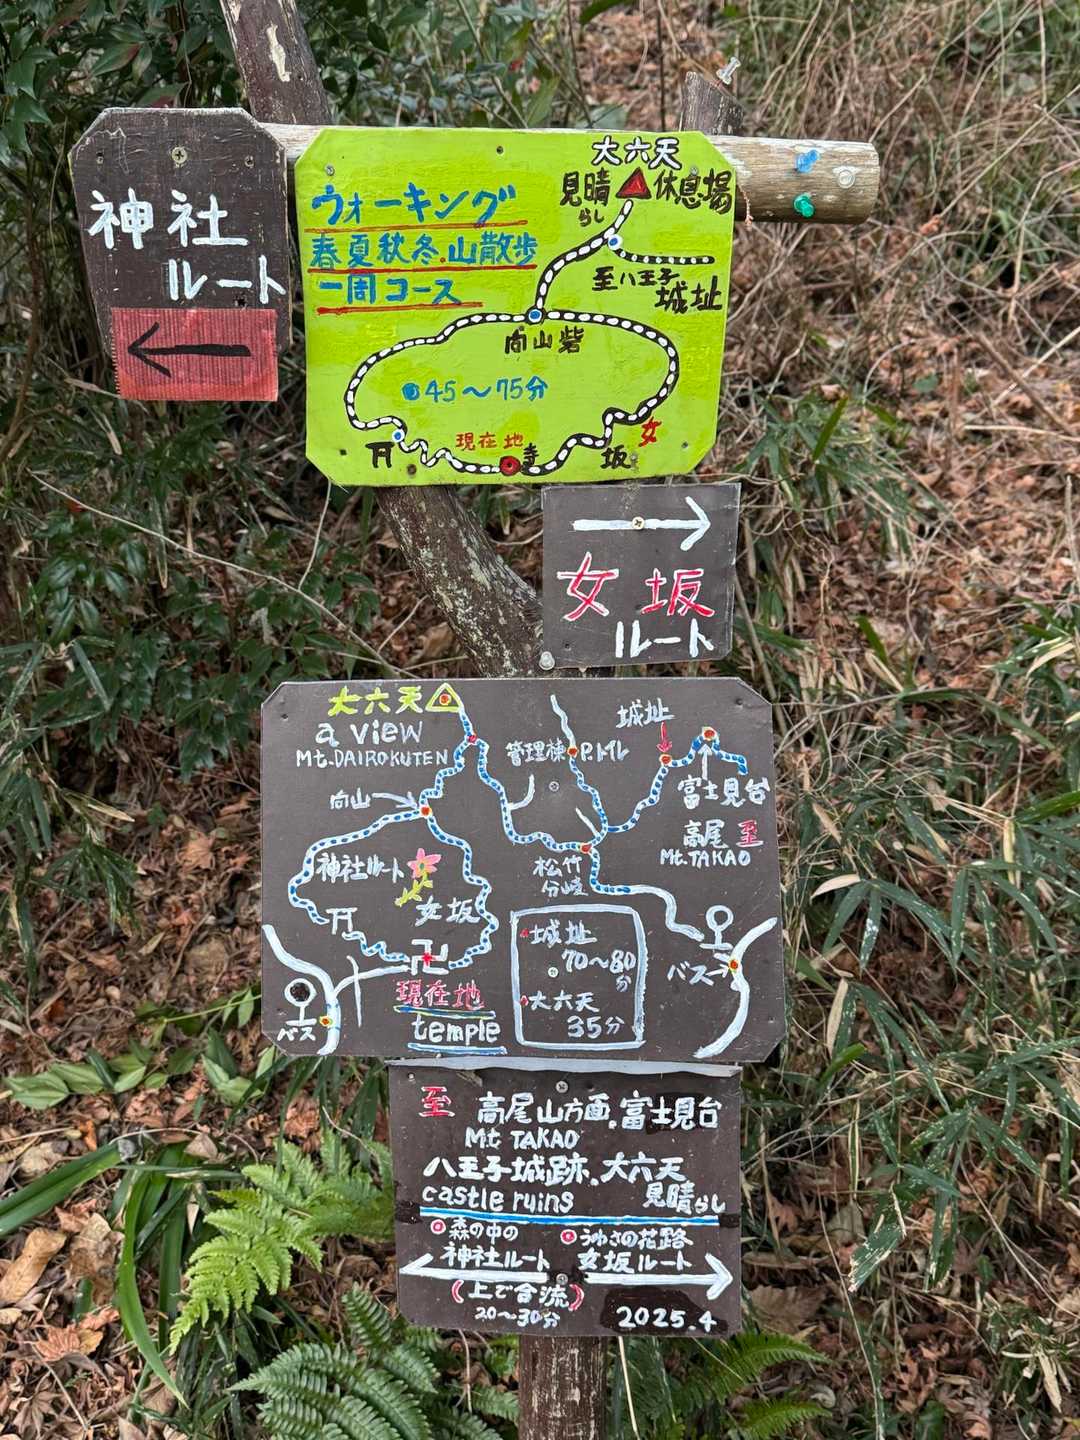 神社
ルート
大六天
見晴
らし
休息場
ウォーキング
春夏秋冬.山散歩
一周コース
至八王子
城址
向山砦
45〜75分
現在地
寺
女
坂
女坂
ルート
大六天
a view
Mt.DAIROKUTEN
管理棟
P.トイレ
城址
富士見台
向山
高尾 至
Mt.TAKAO
神社ルート
女坂
松竹
分岐
城址
70〜80
分
大六天
35分
バス
バス
卍
現在地
temple
至 高尾山方面.富士見台
Mt TAKAO
八王子城跡.大六天
castle ruins 見晴らし
森の中の
神社ルート
うわさの花路
女坂ルート
(上で合流)
20〜30分
2025.4